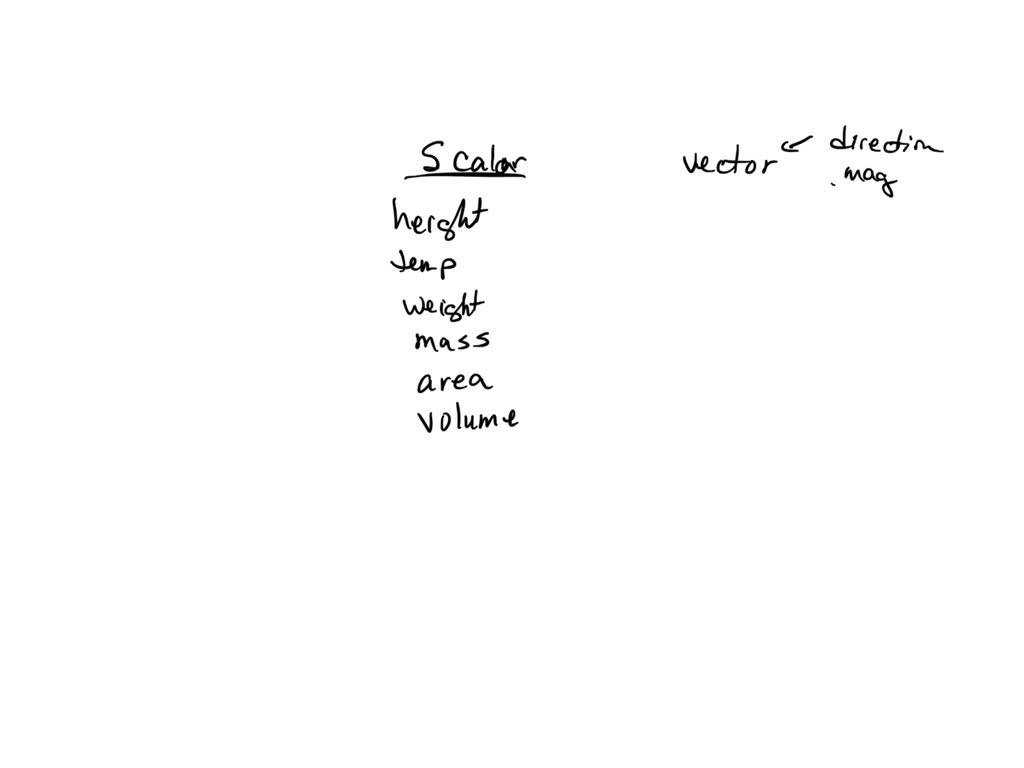 Scalar
vector direction
. mag
height
temp
weight
mass
area
volume